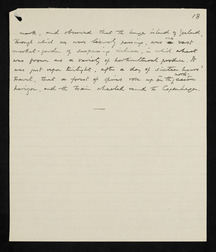 18
mark, and observed that the large island of Zealand,
through which we were leisurely passing, was a vast
market-garden of surprising richness, in which wheat
was grown as a variety of horticultural produce. It
was just upon twilight, after a day of sixteen hours'
travel, that a forest of spires rose up on the
horizon, and the train wheeled round to Copenhagen.